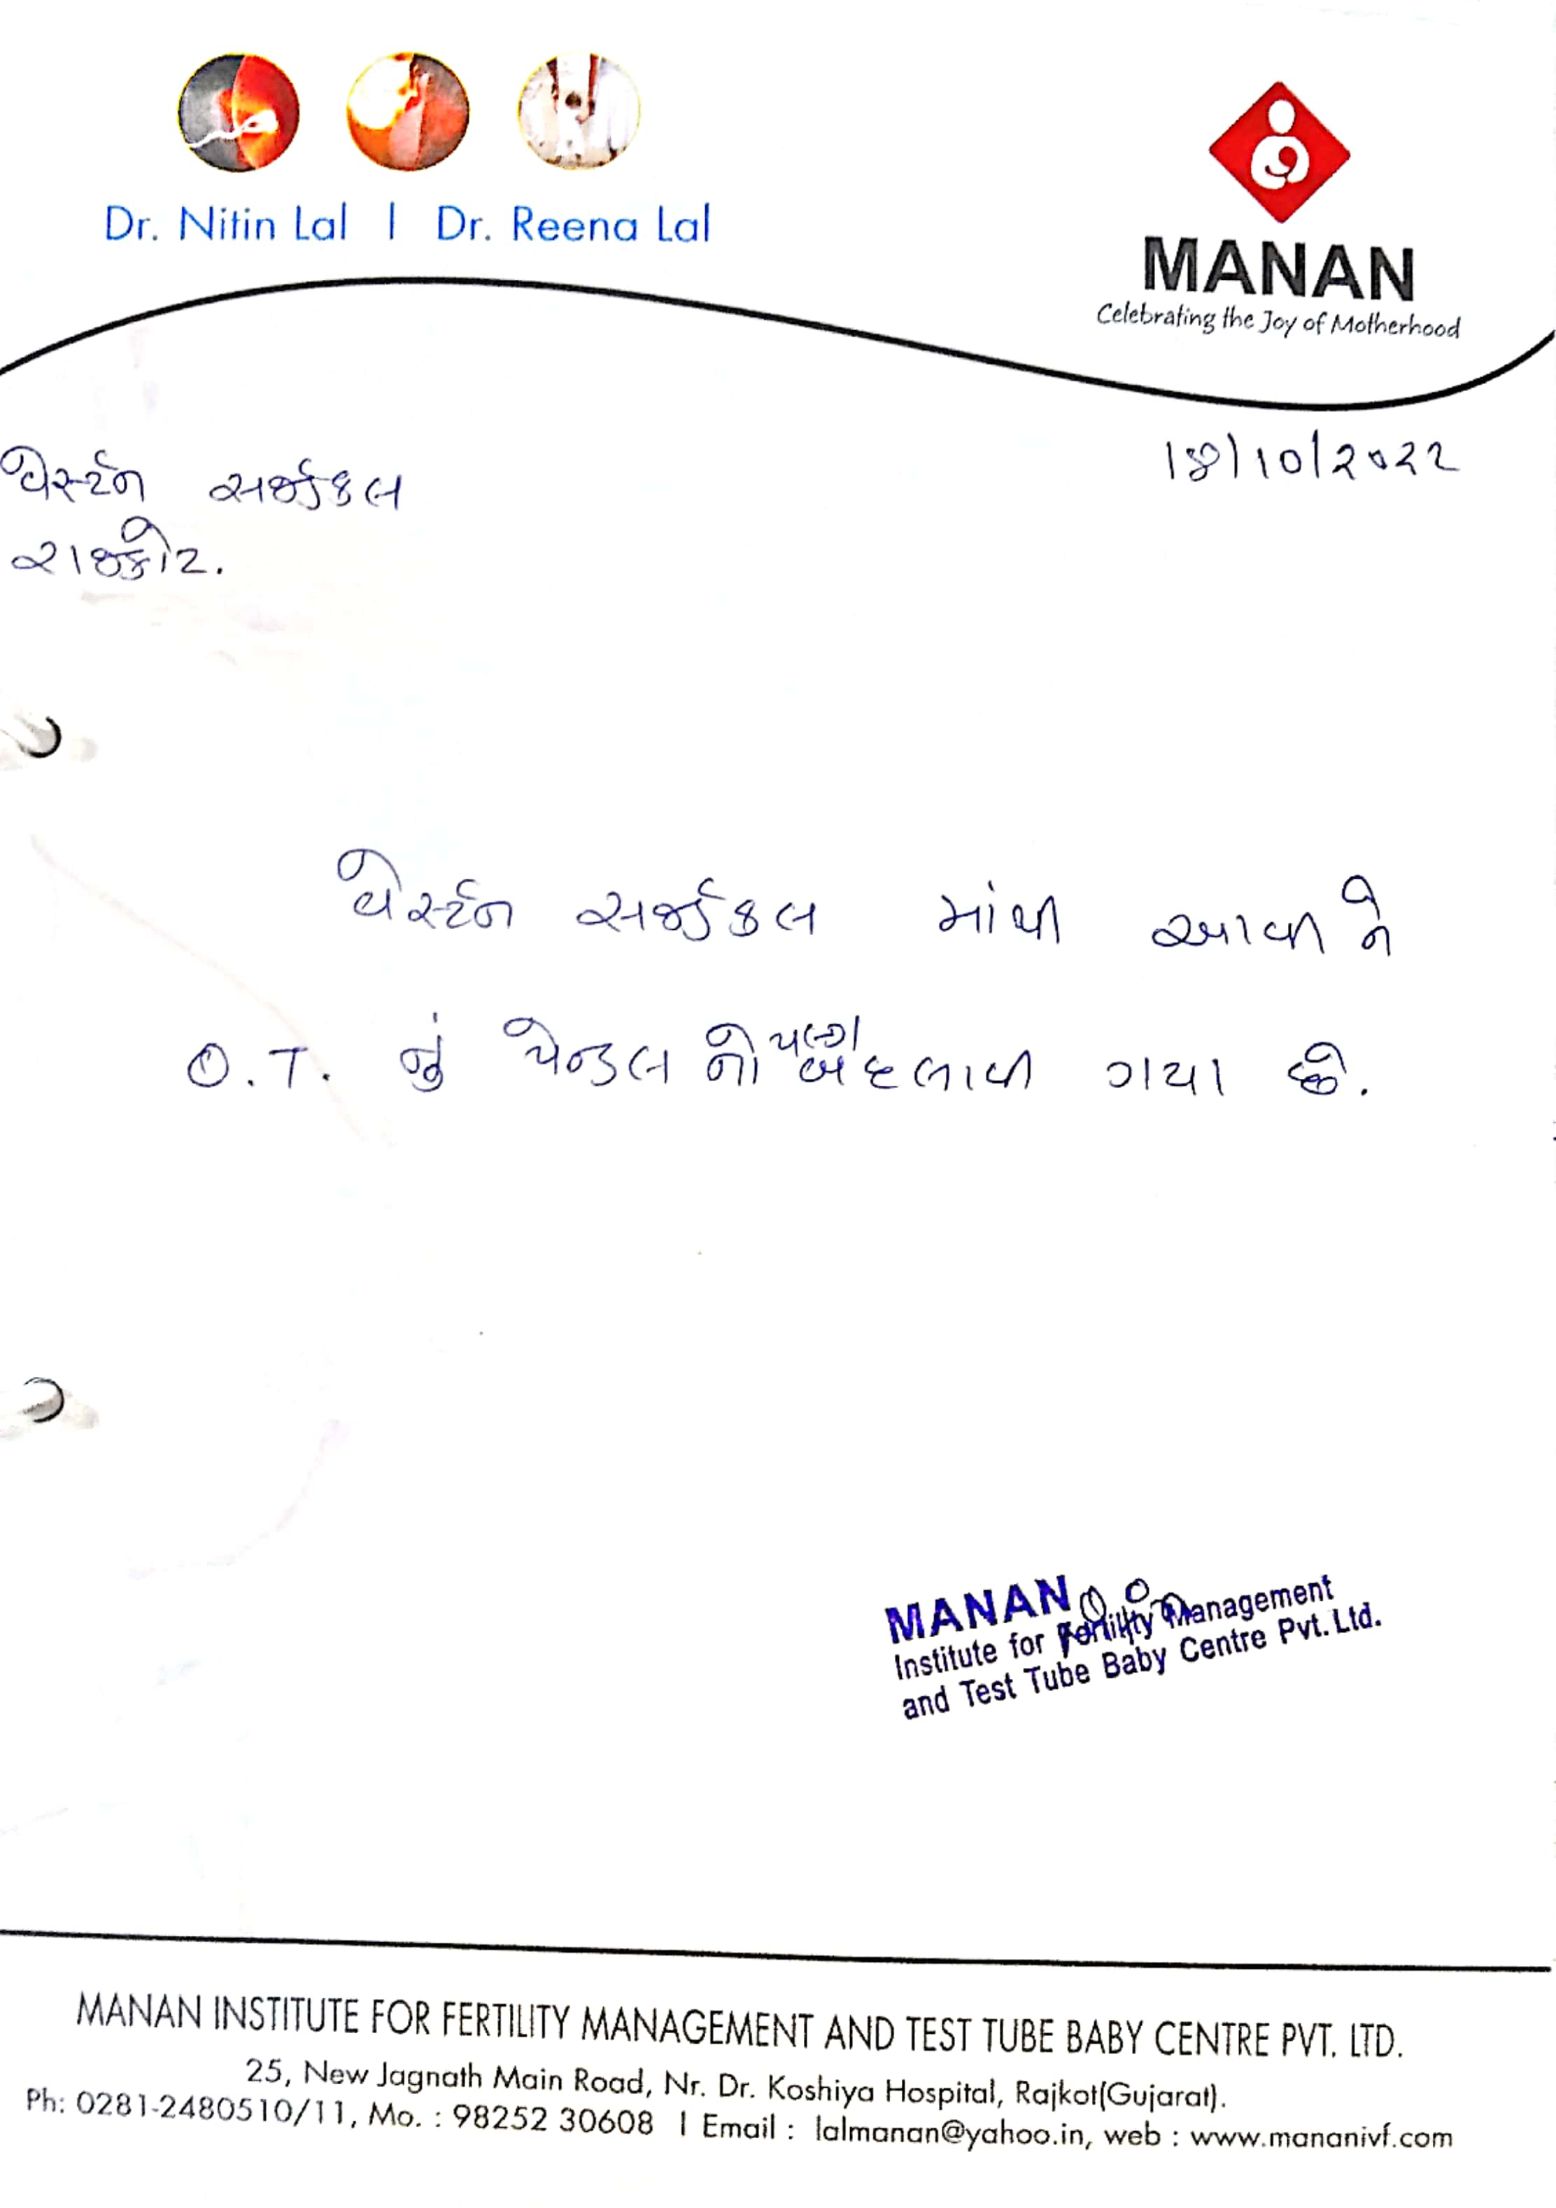 Dr. Nitin Lal | Dr. Reena Lal
MANAN
Celebrating the Joy of Motherhood
વેસ્ટન સર્જીકલ
રાજકોટ.
વેસ્ટન સર્જીકલ માંથી આવી ને
O.T. નું પેન્ડલ નો પ્લગ બદલાવી ગયા છે.
MANAN
Institute for Fertility Management
and Test Tube Baby Centre Pvt. Ltd.
MANAN INSTITUTE FOR FERTILITY MANAGEMENT AND TEST TUBE BABY CENTRE PVT. LTD.
25, New Jagnath Main Road, Nr. Dr. Koshiya Hospital, Rajkot(Gujarat).
Ph: 0281-2480510/11, Mo. : 98252 30608 | Email : lalmanan@yahoo.in, web : www.mananivf.com